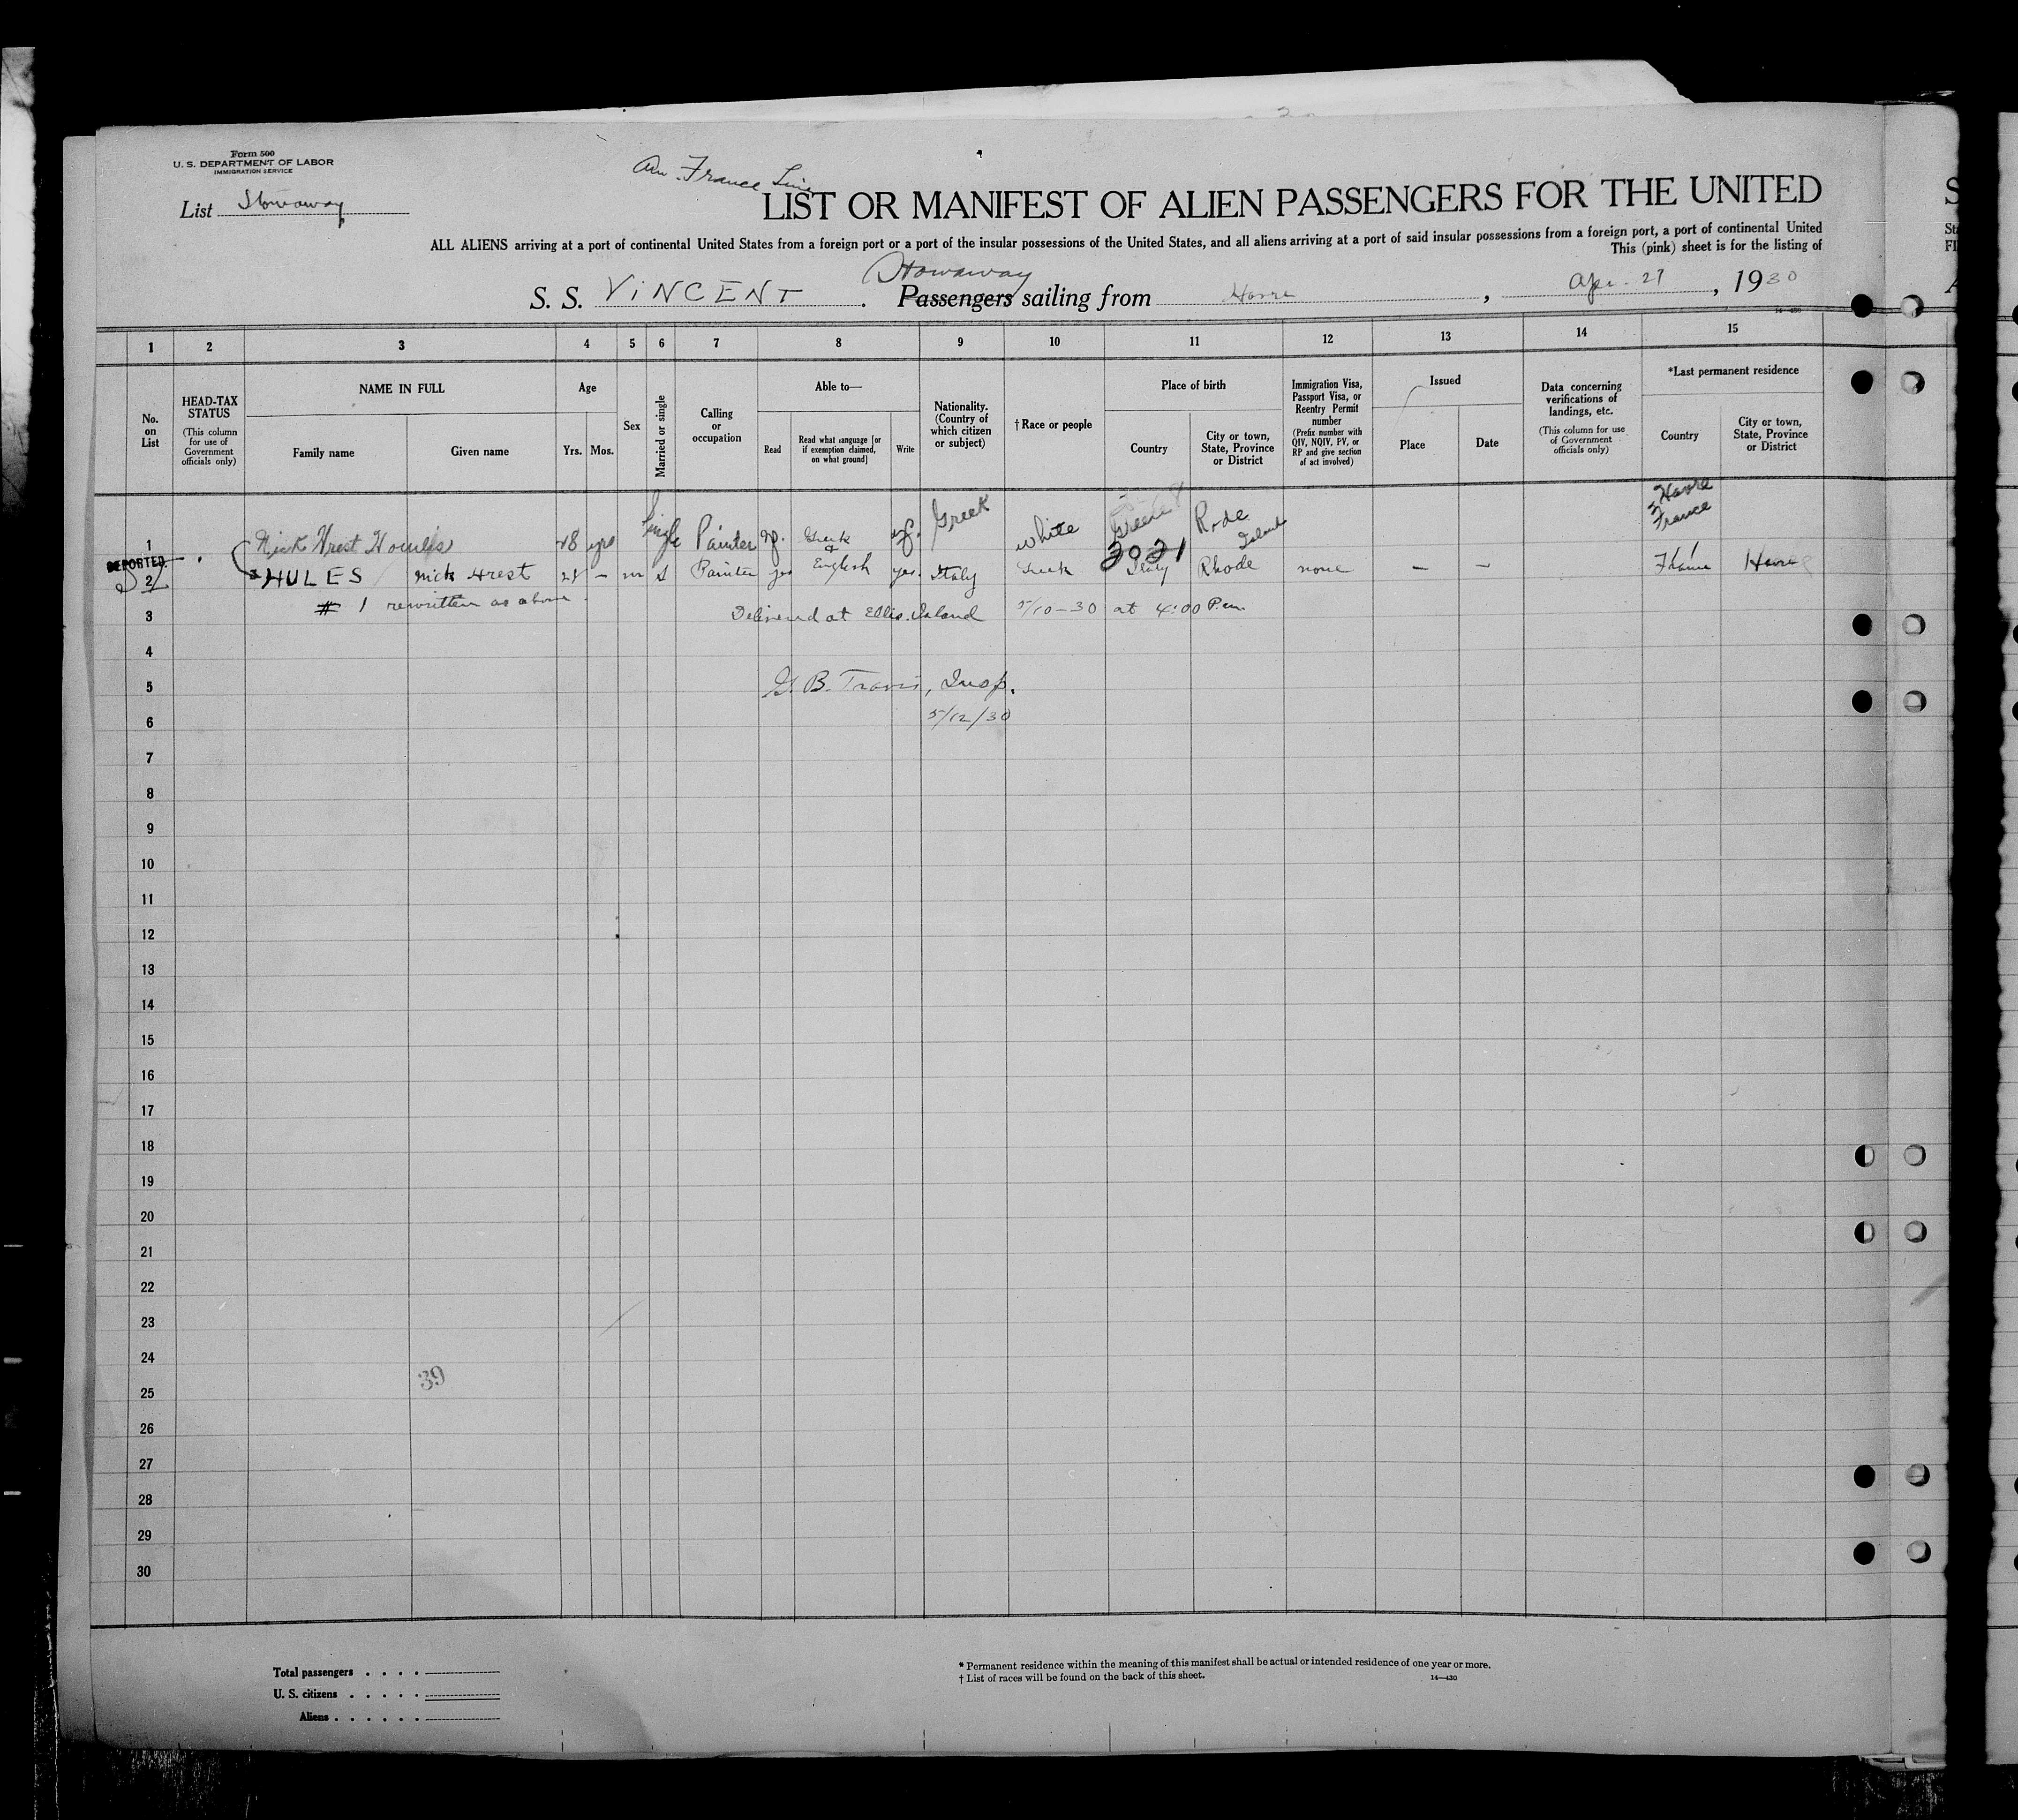 Form 500
U. S. DEPARTMENT OF LABOR
IMMIGRATION SERVICE
List Stowaway
Am. France Line
LIST OR MANIFEST OF ALIEN PASSENGERS FOR THE UNITED
ALL ALIENS arriving at a port of continental United States from a foreign port or a port of the insular possessions of the United States, and all aliens arriving at a port of said insular possessions from a foreign port, a port of continental United
This (pink) sheet is for the listing of
Stowaway
S. S. VINCENT . Passengers sailing from Havre , Apr. 27 , 1930
1 2 3 4 5 6 7 8 9 10 11 12 13 14 15
No. on List
HEAD-TAX STATUS
(This column for use of Government officials only)
NAME IN FULL
Family name Given name
Age
Yrs. Mos.
Sex
Married or single
Calling or occupation
Able to—
Read Read what language [or if exemption claimed, on what ground] Write
Nationality. (Country of which citizen or subject)
† Race or people
Place of birth
Country City or town, State, Province or District
Immigration Visa, Passport Visa, or Reentry Permit number
(Prefix number with QIV, NQIV, PV, or RP and give section of act involved)
Issued
Place Date
Data concerning verifications of landings, etc.
(This column for use of Government officials only)
*Last permanent residence
Country City or town, State, Province or District
1 Nick Hrest 28 yrs Single Painter Greek & Greek white Greece Rode Island Havre France
DEPORTED
3021
2 HULES Nick Hrest 28 – m S Painter yes English yes Italy Greek Italy Rhode none – – France Havre
# 1 rewritten as above
3 Delivered at Ellis Island 5/10-30 at 4:00 P.m.
4
5 G. B. Travis, Insp.
6 5/12/30
7
8
9
10
11
12
13
14
15
16
17
18
19
20
21
22
23
24
39
25
26
27
28
29
30
Total passengers . . . .
U. S. citizens . . . . .
Aliens . . . . . .
* Permanent residence within the meaning of this manifest shall be actual or intended residence of one year or more.
† List of races will be found on the back of this sheet.
14—430